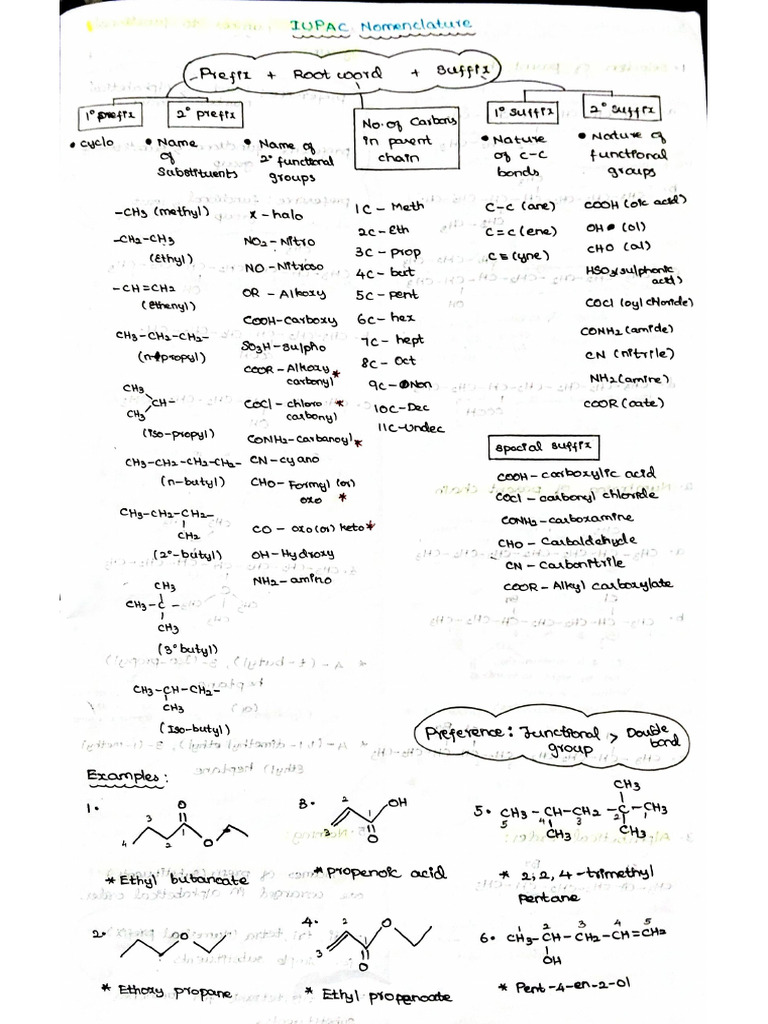 IUPAC Nomenclature
Prefix + Root word + Suffix
1° prefix
2° prefix
No. of Carbons in parent chain
1° suffix
2° suffix
• cyclo
• Name of Substituents
• Name of 2° functional groups
• Nature of C-C bonds
• Nature of functional groups
-CH3 (methyl)
-CH2-CH3
(Ethyl)
-CH=CH2
(Ethenyl)
CH3-CH2-CH2-
(n-propyl)
CH3
CH-
CH3
(iso-propyl)
CH3-CH2-CH2-CH2-
(n-butyl)
CH3-CH2-CH2-
CH2
(2°-butyl)
CH3
CH3-C-
CH3
(3°butyl)
CH3-CH-CH2-
CH3
(Iso-butyl)
X - halo
NO2-Nitro
NO-Nitroso
OR - Alkoxy
COOH-Carboxy
SO3H-sulpho
COOR-Alkoxy carbonyl*
COCl - chloro carbonyl*
CONH2-Carbanoyl*
CN-cyano
CHO-Formyl (or) oxo *
CO - oxo (or) keto*
OH-Hydroxy
NH2-amino
1C - Meth
2C-Eth
3C-prop
4C - but
5C-pent
6C-hex
7C-hept
8C-Oct
9C-Non
10C-Dec
11C-Undec
C-C (ane)
C=C (ene)
C≡(yne)
COOH (oic acid)
OH (ol)
CHO (al)
HSO3(sulphonic acid)
COCl (oyl chloride)
CONH2 (amide)
CN (nitrile)
NH2 (amine)
COOR (oate)
special suffix
COOH-carboxylic acid
COCl-carbonyl chloride
CONH2-carboxamine
CHO-Carbaldehyde
CN-Carbonitrile
COOR-Alkyl carboxylate
Preference: Functional group > Double bond
Examples:
1.
4 3 2 1
O
O
* Ethyl butanoate
2.
O
* Ethoxy propane
3.
3 2 1
OH
O
* propenoic acid
4.
3 2 1
O
O
* Ethyl propenoate
5.
CH3
CH3-CH-CH2-C-CH3
5 4 3 2 1
CH3
CH3
* 2,2,4-trimethyl
Pentane
6.
1 2 3 4 5
CH3-CH-CH2-CH=CH2
OH
* Pent-4-en-2-ol